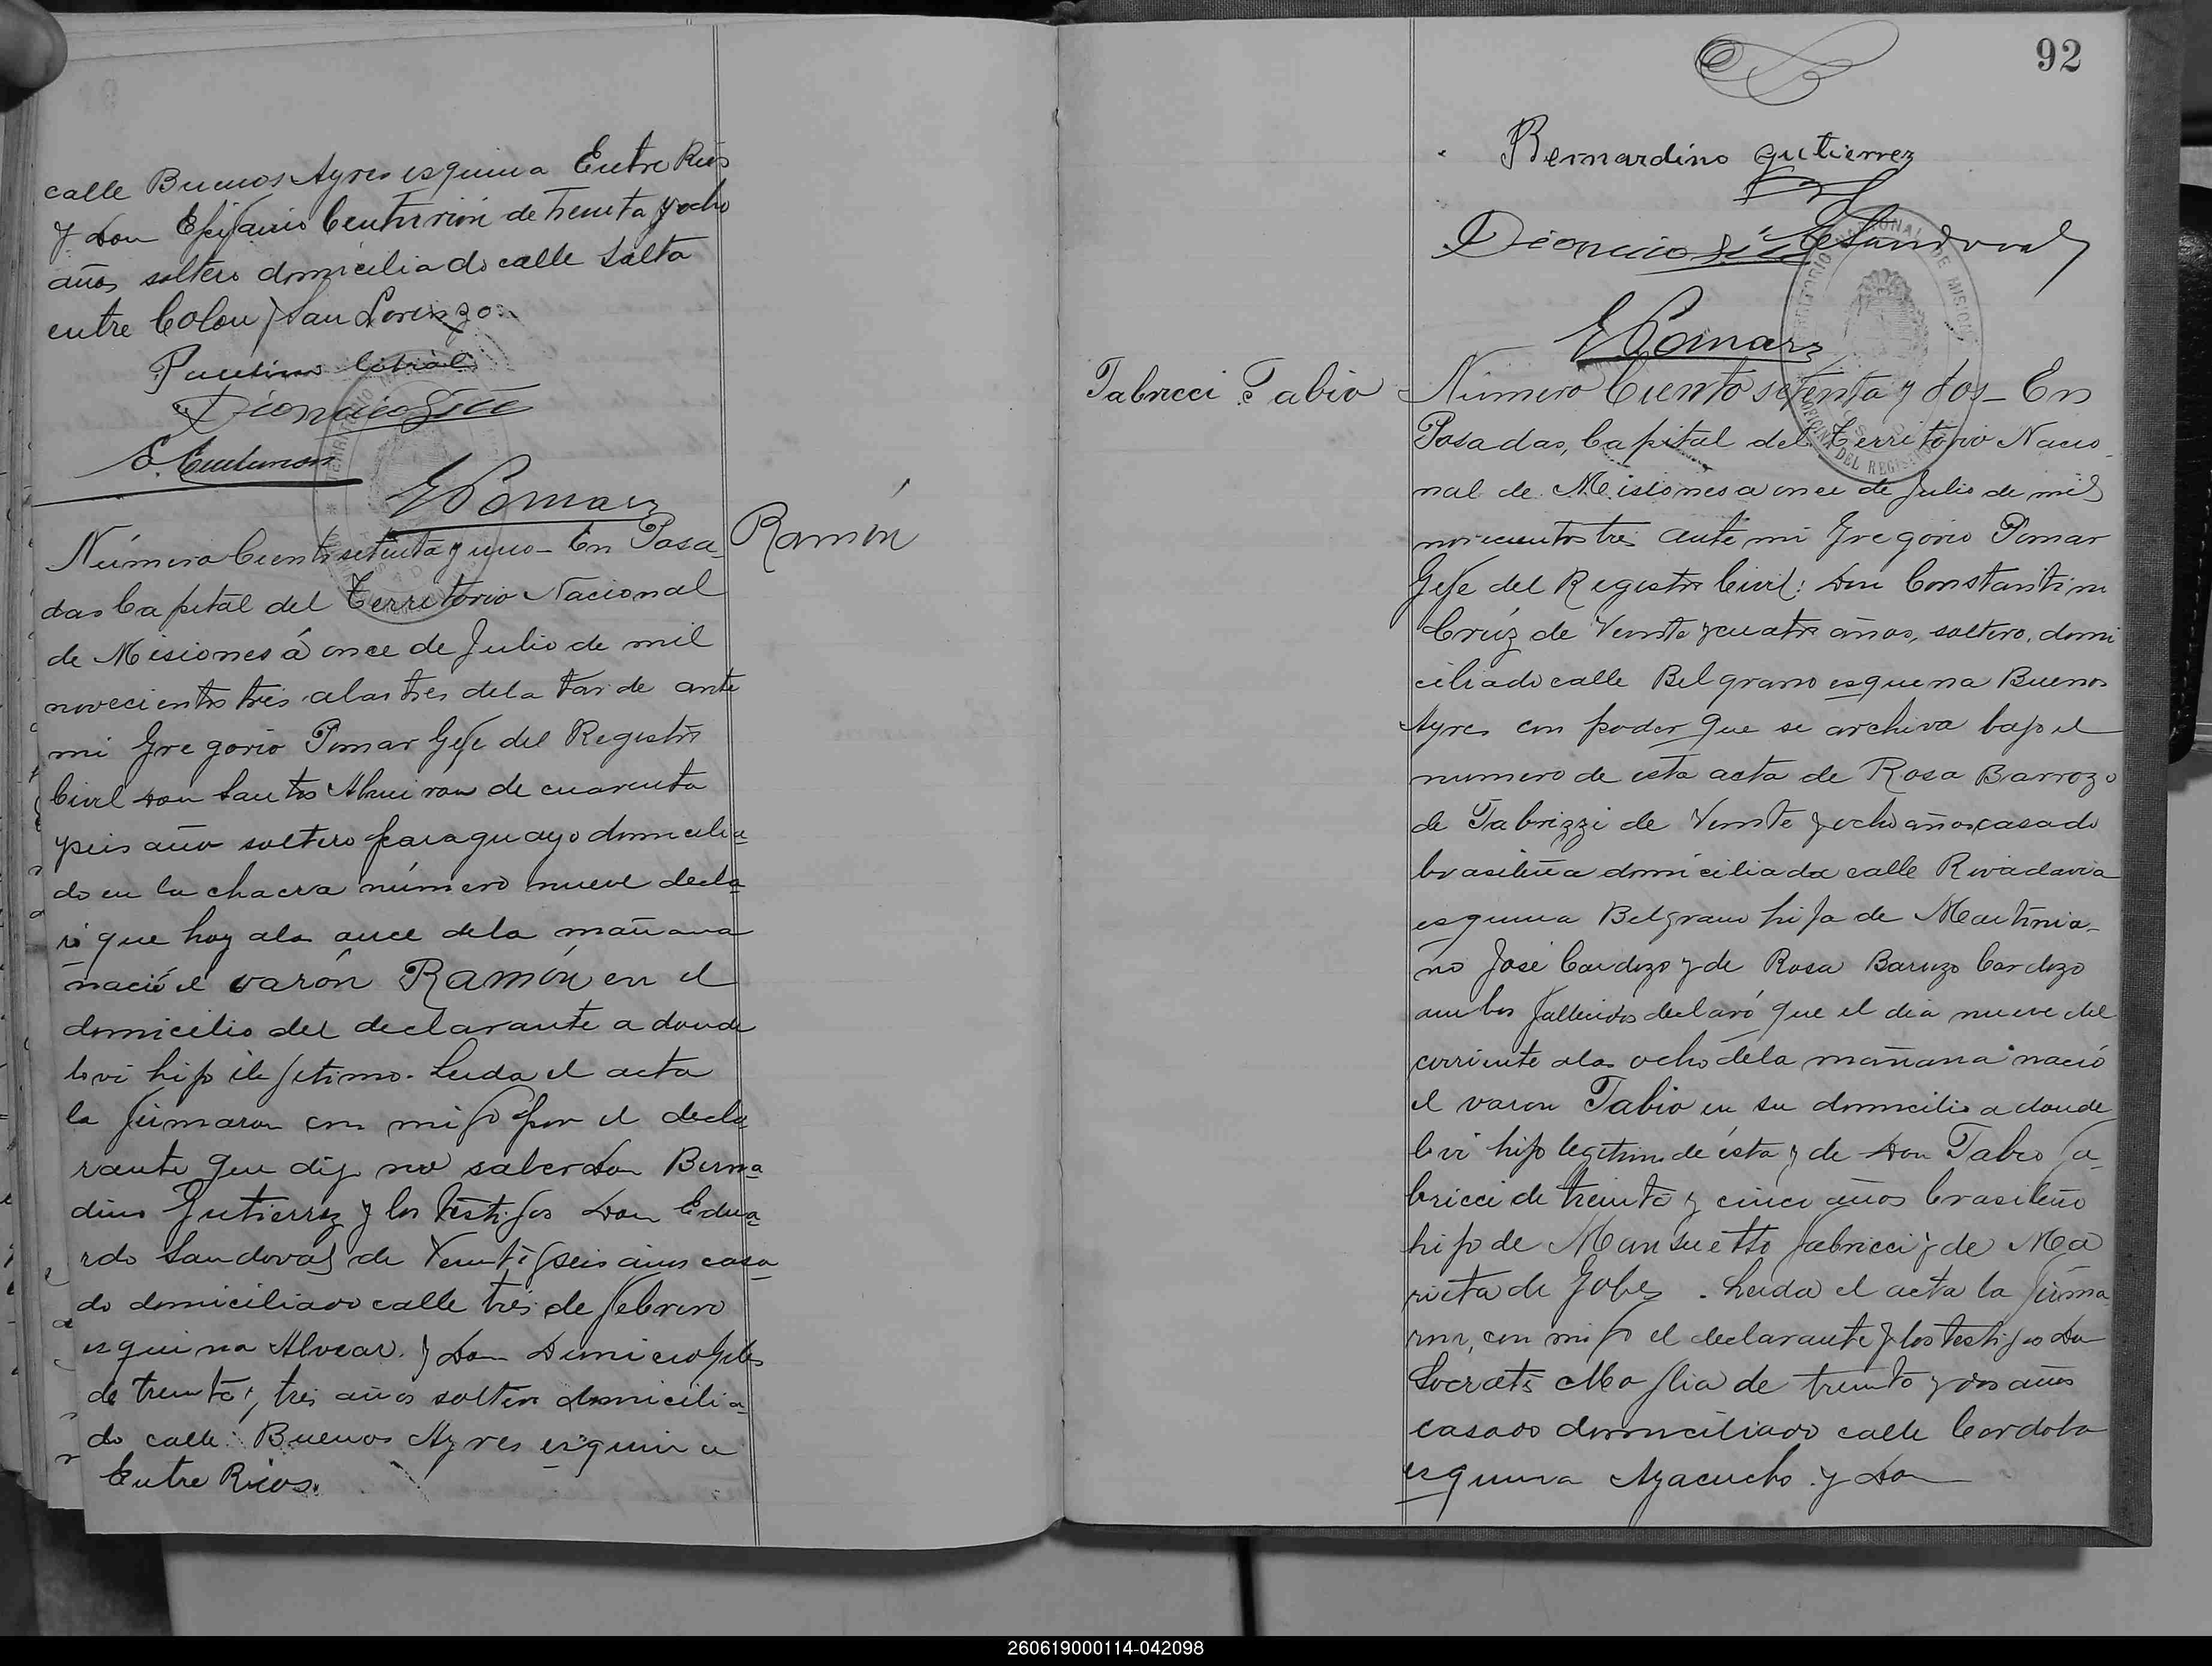 calle Buenos Ayres esquina Entre Rios
y don Epifanio Centurion de treinta y ocho
años soltero domiciliado calle Salta
entre Colon y San Lorenzo.
E. Centurion
G Pomar
Ramón
Número Ciento setenta y uno - En Posa
das Capital del Territorio Nacional
de Misiones á once de Julio de mil
novecientos tres a las tres de la tarde ante
mi Gregorio Pomar Gefe del Registro
Civil don Santos Almiron de cuarenta
y seis año soltero paraguayo domicilia
do en la chacra número nueve decla
ró que hoy a la once de la mañana
nació el varón Ramón en el
domicilio del declarante a donde
lo vi hijo ilegitimo. Leida el acta
la firmaron con migo por el decla
rante que dijo no saber don Berna
dino Gutierrez y los testigos don Edua
rdo Sandoval de Veinti y seis años casa
do domiciliado calle tres de febrero
esquina Alvear. y don Dionicio
de treinta y tres años soltero domicilia
do calle Buenos Ayres esquina
Entre Rios.
92
Bernardino Gutierrez
E Sandoval
Dionicio
G Pomar
TERRITORIO NACIONAL DE MISIONES
OFICINA DEL REGISTRO
Fabricci Fabio
Número Ciento setenta y dos - En
Posadas, Capital del Territorio Nacio
nal de Misiones a once de Julio de mil
novecientos tres ante mi Gregorio Pomar
Gefe del Registro Civil: don Constantino
Crúz de Veinte y cuatro años, soltero, domi
ciliado calle Belgrano esquina Buenos
Ayres con poder que se archiva bajo el
numero de esta acta de Rosa Barrozo
de Fabrizzi de Veinte y ocho años casado
brasileña domiciliada calle Rivadavia
esquina Belgrano hija de Martinia-
no José Cardozo y de Rosa Barozo Cardozo
ambos fallecidos declaró que el dia nueve del
corriente a las ocho de la mañana nació
el varon Fabio en su domicilio a donde
lo vi hijo legitimo de ésta y de don Fabio Fa
bricci de treinta y cinco años brasileño
hijo de Mansuetto Fabricci y de Ma
rieta de . Leida el acta la firma
ron, con migo el declarante y los testigos don
Socrates de treinta y dos años
casado domiciliado calle Cordoba
esquina Ayacucho y don